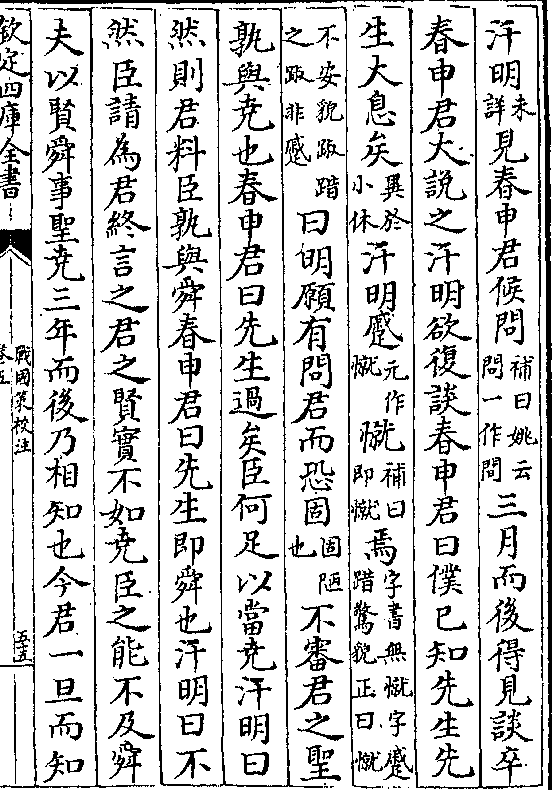 汗明未詳見春申君候問補曰姚云問一作間三月而後得見談卒
春申君大說之汗明欲復談春申君曰僕已知先生先
生大息矣異於小休汗明蹙元作憱憱補曰即憱焉字書無憱字蹙踖驚貌正曰憱
不安貌踧踖之踧非蹙曰明願有問君而恐固固陋也不審君之聖
孰與堯也春申君曰先生過矣臣何足以當堯汗明曰
然則君料臣孰與舜春申君曰先生即舜也汗明曰不
然臣請為君終言之君之賢實不如堯臣之能不及舜
夫以賢舜事聖堯三年而後乃相知也今君一旦而知
欽定四庫全書
戰國策校注
卷五
五五